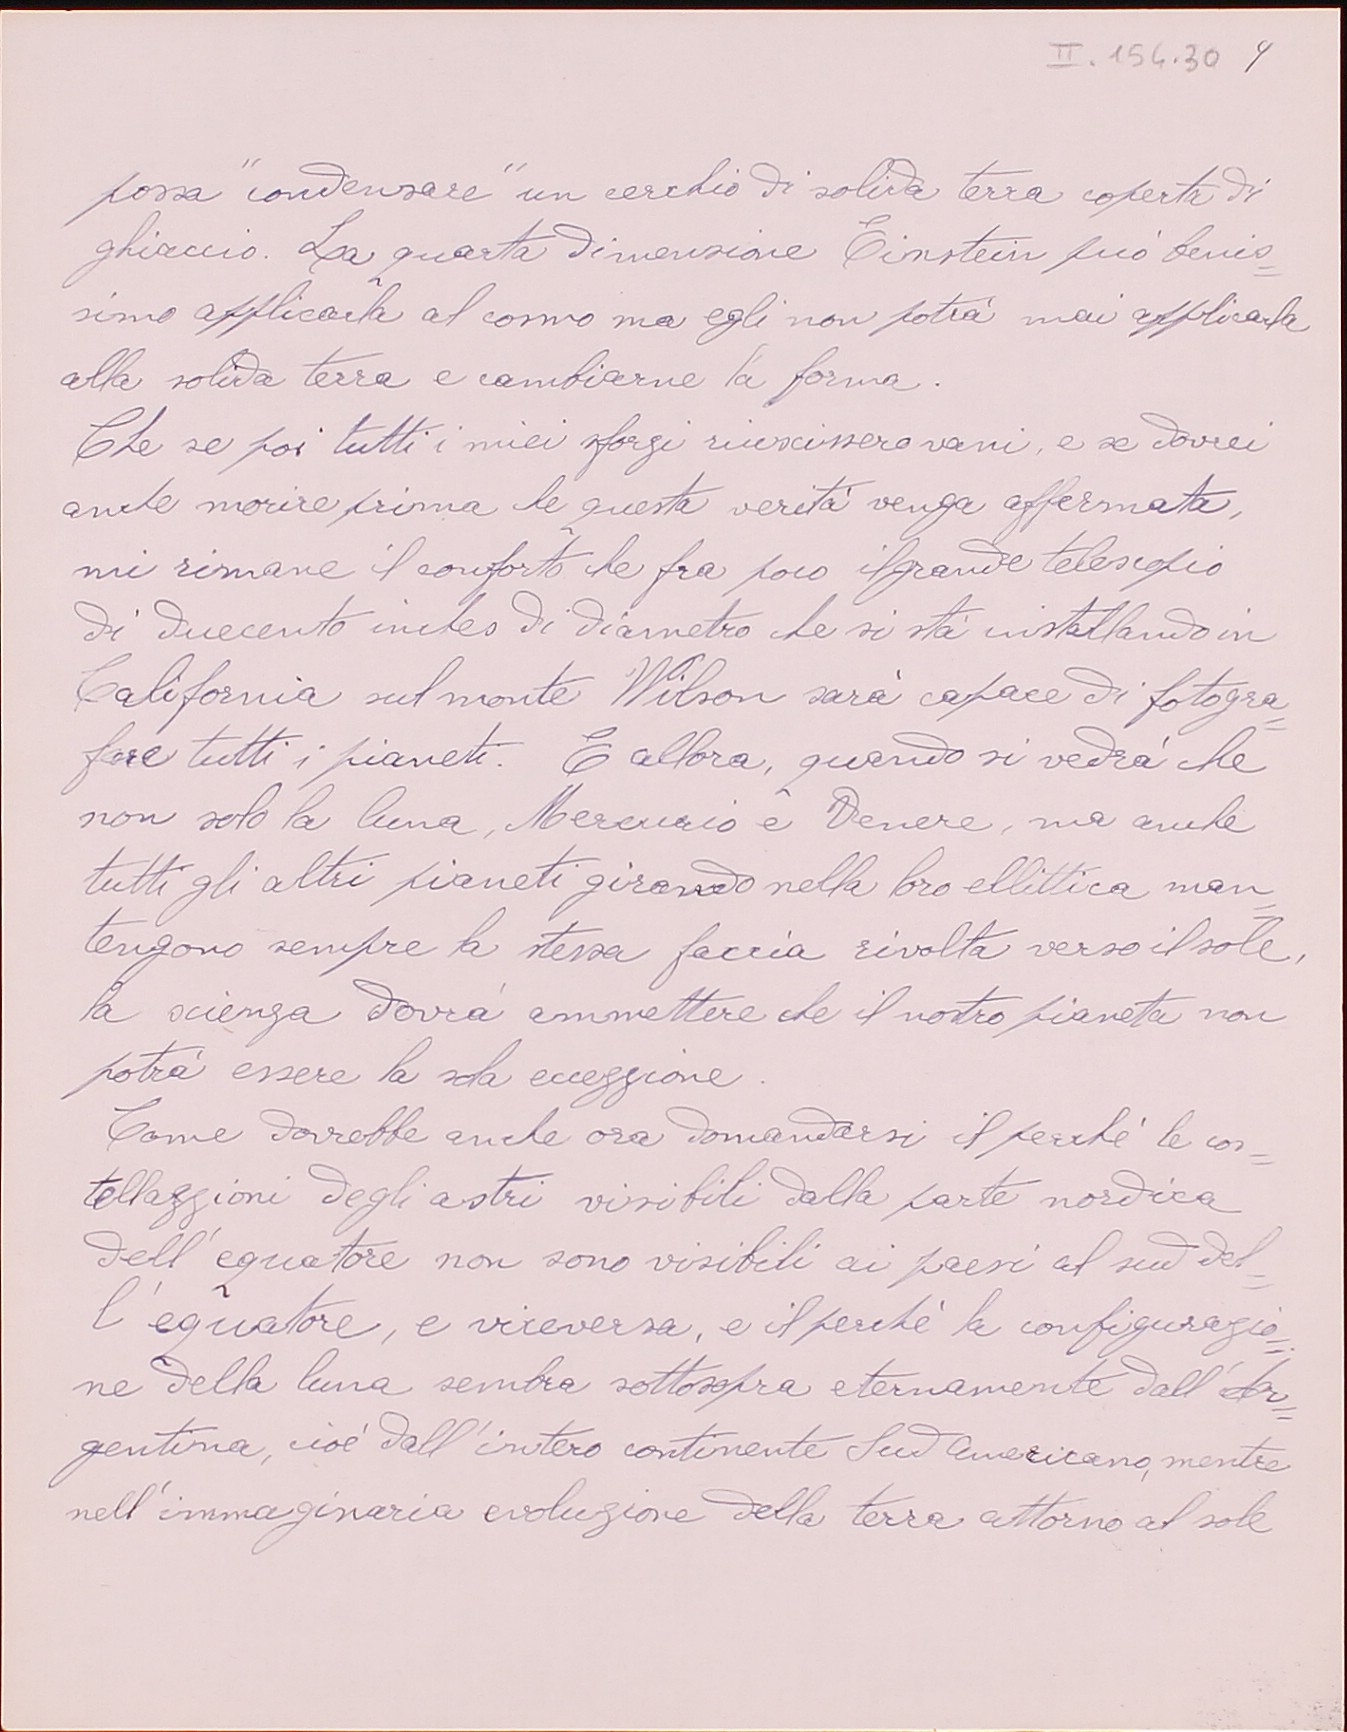 II.154.30 4
possa "condensare" un cerchio di solida terra coperta di
ghiaccio. La quarta dimensione Einstein può benis=
simo applicarla al cosmo ma egli non potrà mai applicarla
alla solida terra e cambiarne la forma.
Che se poi tutti i miei sforzi riuscissero vani, e se dovrei
anche morire prima che questa verità venga affermata,
mi rimane il conforto che fra poco il grande telescopio
di duecento inches di diametro che si stà installando in
California sul monte Wilson sarà capace di fotogra=
fare tutti i pianeti. E allora, quando si vedrà che
non solo la luna, Mercurio e Venere, ma anche
tutti gli altri pianeti girando nella loro ellittica man=
tengono sempre la stessa faccia rivolta verso il sole,
la scienza dovrà ammettere che il nostro pianeta non
potrà essere la sola ecceggione.
Come dovrebbe anche ora domandarsi il perché le cos=
tellazzioni degli astri visibili dalla parte nordica
dell'equatore non sono visibili ai paesi al sud del=
l'equatore, e viceversa, e il perché la configurazio=
ne della luna sembra sottosopra eternamente dall'Ar=
gentina, cioé dall'intero continente Sud Americano, mentre
nell'immaginaria evoluzione della terra attorno al sole